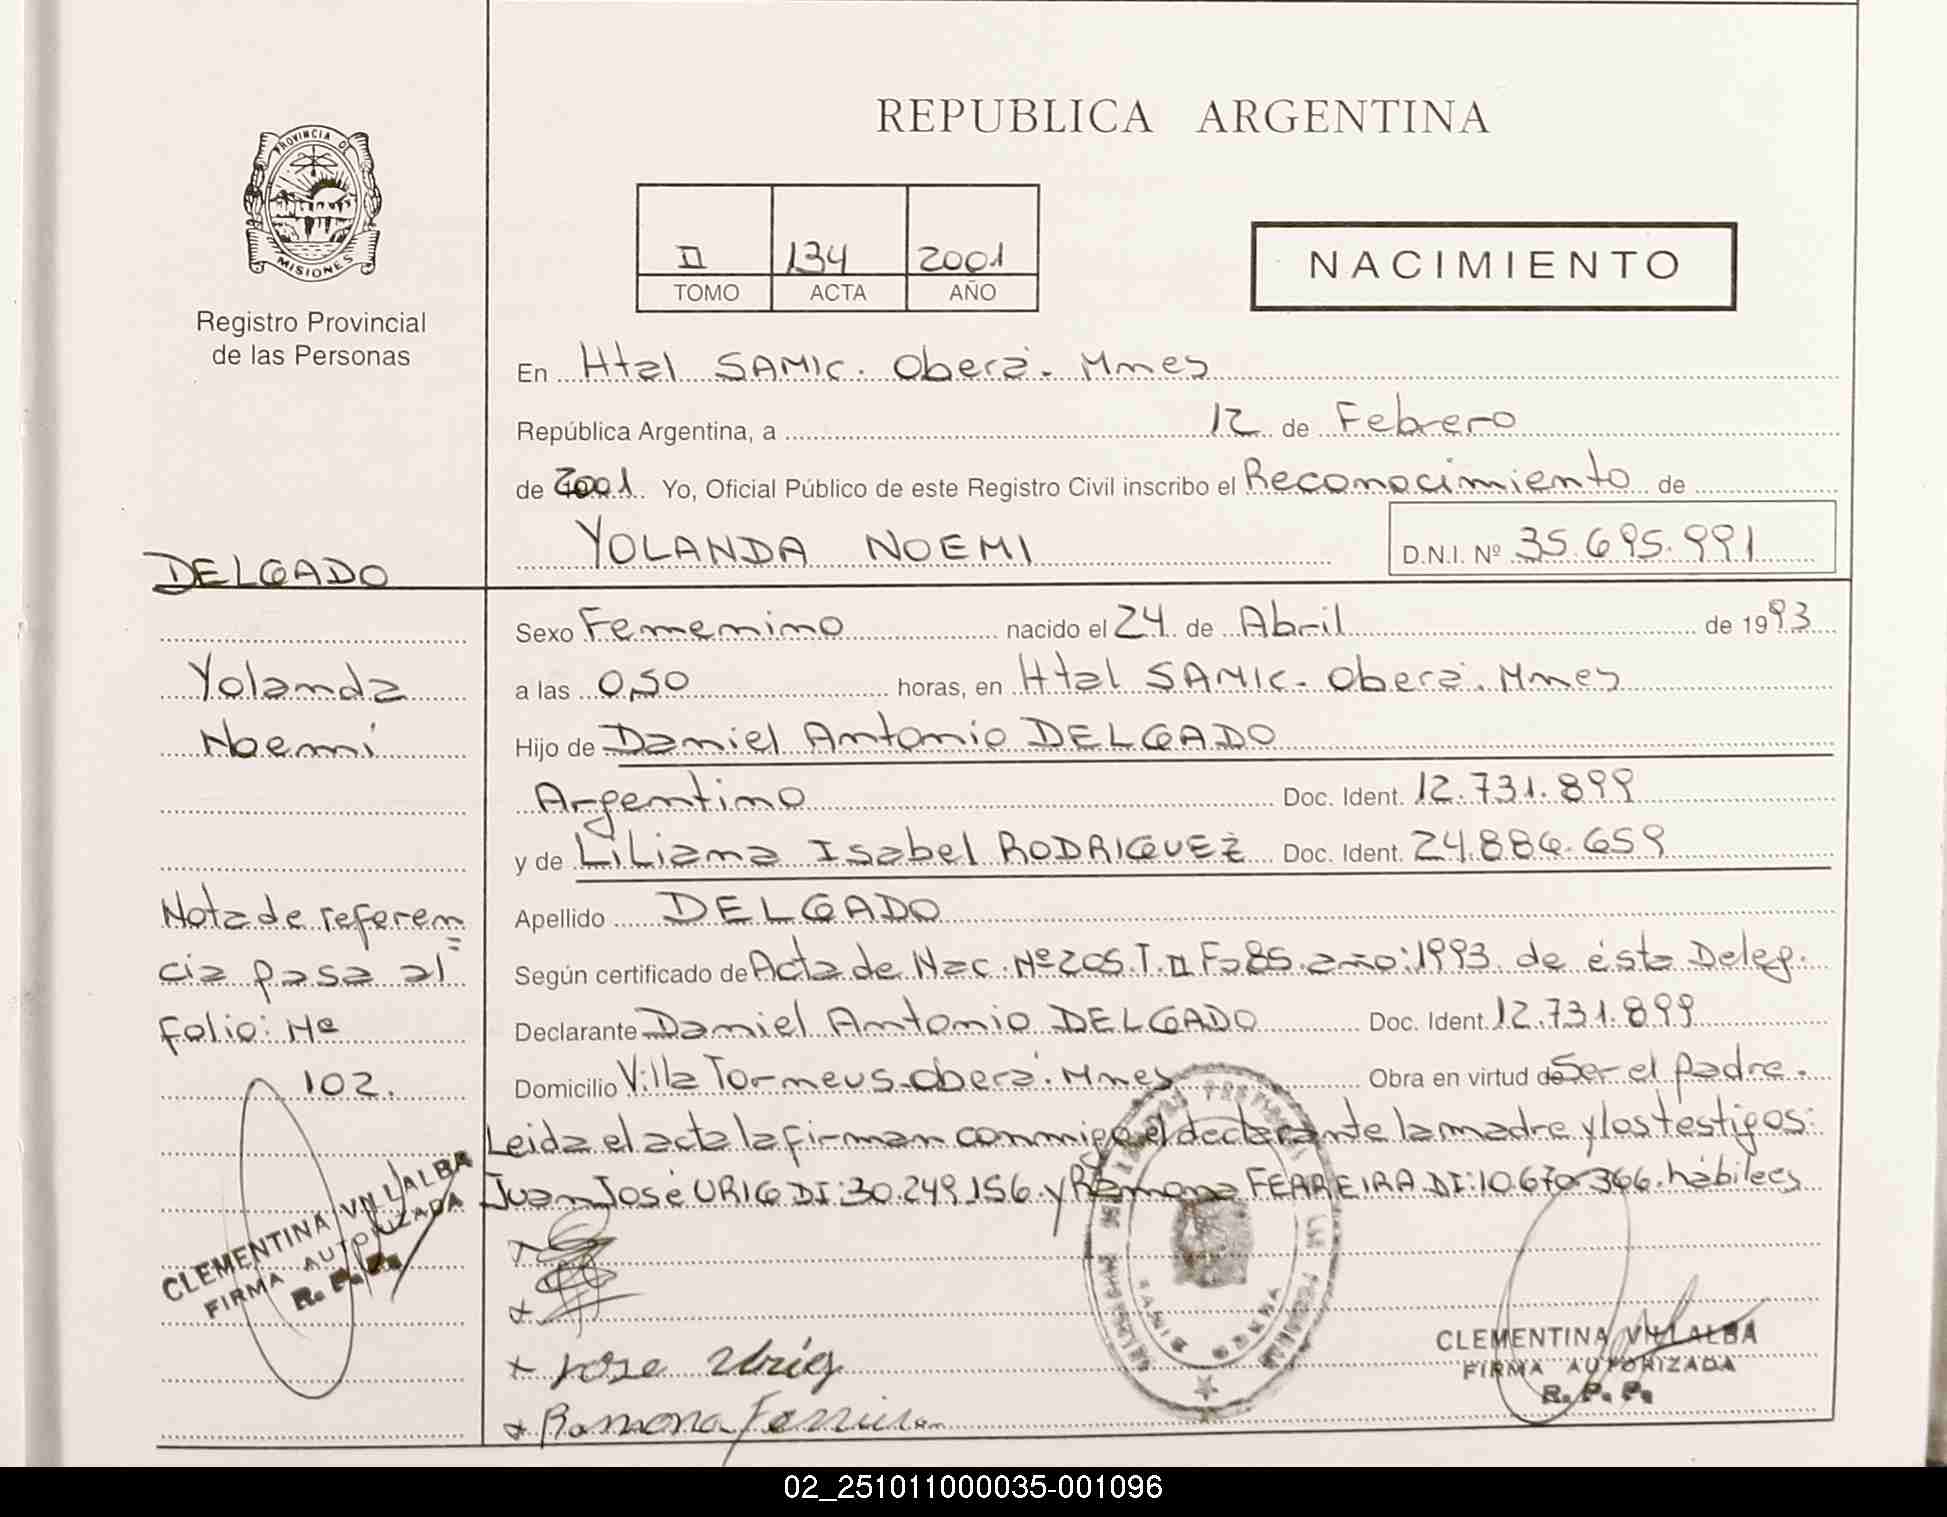 REPUBLICA ARGENTINA
PROVINCIA DE
MISIONES
Registro Provincial
de las Personas
II 134 2001
TOMO ACTA AÑO
NACIMIENTO
En Htal SAMIC. Oberá. Mnes
República Argentina, a 12 de Febrero
de 2001. Yo, Oficial Público de este Registro Civil inscribo el Reconocimiento de
YOLANDA NOEMI D.N.I. Nº 35.695.991
DELGADO
Yolanda
Noemi
Nota de referen
cia pasa al
folio: Nº
102.
CLEMENTINA VILLALBA
FIRMA AUTORIZADA
R. P. P.
Sexo Femenino nacido el 24 de Abril de 1993
a las 0,50 horas, en Htal SAMIC. Oberá. Mnes
Hijo de Daniel Antonio DELGADO
Argentino Doc. Ident. 12.731.899
y de Liliana Isabel RODRIGUEZ Doc. Ident. 24.886.659
Apellido DELGADO
Según certificado de Acta de Nac. Nº 205. T. II Fo 85. año: 1993. de ésta Deleg.
Declarante Daniel Antonio DELGADO Doc. Ident. 12.731.899
Domicilio Villa Torneus. Oberá. Mnes Obra en virtud de Ser el padre.
Leida el acta la firman conmigo el declarante la madre y los testigos:
Juan José URIG DI: 30.249.156. y Ramona FERREIRA DI: 10.670.366. hábiles
x Jose Urig
x Ramona Ferreira
CLEMENTINA VILLALBA
FIRMA AUTORIZADA
R. P. P.
02_251011000035-001096